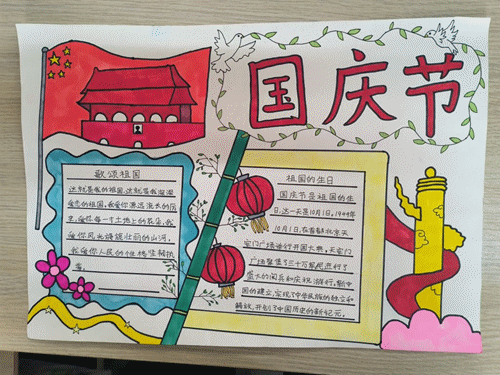 国庆节
歌颂祖国
这就是我的祖国,这就是我深深
爱恋的祖国。我爱你源远流长的历
史,我爱你每一寸土地上的花朵,我
爱你风光旖旎壮丽的山河,
我爱你人民的性格坚韧执
着。
祖国的生日
国庆节是祖国的生
日,这一天是10月1日,1949年
10月1日,在首都北京天
安门广场举行开国大典,天安门
广场聚集了三十万军民进行了
盛大的阅兵和庆祝游行,新中
国的建立,实现了中华民族的独立和
解放,开创了中国历史的新纪元.